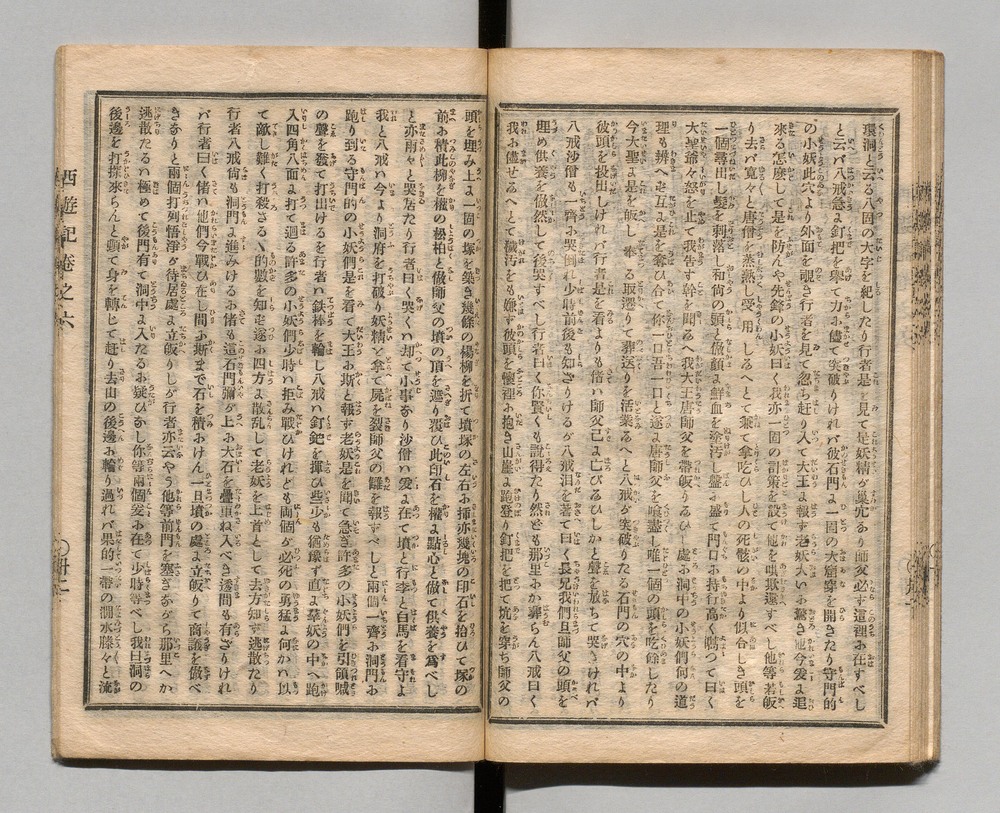 環洞と云る八箇の大字を紀したり行者是を見て是妖精が巣穴あり師父必ず這裡お在すべし
と云バ八戒急よ釘把を挙て力お儘て突破りけれバ彼石門よ一箇の大窟穿を開きたり守門的
の小妖此穴より外面を覗き行者を見て忽ち赶り入て大王よ報ず老妖大いお驚き他今爰よ追
来る怎麼して是を防んや先鋒の小妖曰く我亦一箇の計策を設て他を哄欺還すべし他等若皈
り去バ寛々と唐僧を蒸熟し受用しるへとて兼て拿吃ひし人の死骸の中より似合しき頭を
一個尋出し髪を剃落し和尚の頭よ倣顔よ鮮血を塗汚し盤お盛て門口お持行高く鳴つて曰く
大聖爺々怒を止て我告す幹を聞るへ我大王唐師父を帶皈りるひし處お洞中の小妖們何の道
理も辨へを互よ是を奪ひ合て你一口吾一口と遂よ唐師父を喰盡し唯一個の頭を吃餘したり
今大聖よ是を皈し奉る取還りて葬送りを活業るへと八戒が突破りたる石門の穴の中より
彼頭を投出しけれバ行者是を看よりも偖ハ師父己よ亡びるひしかと聲を放ちて哭きけれバ
八戒沙僧も一齊お哭倒れ少時前後も知ざりけるが八戒泪を著て曰く長兄我們且師父の頭を
埋め供養を倣然して後哭すべし行者曰く你賢くも説得たり然ども那里おか葬らん八戒曰く
我お儘せるへとて穢汚をも嫌ず彼頭を懷裡お抱き山崖よ跑登り釘把を把て坑を穿ち師父の
頭を埋み土よ一箇の塚を築き幾條の楊柳を折て墳塚の左右お挿亦幾塊の印石を拾ひて塚の
前お積此柳を權の松柏と倣師父の墳の頂を遮り覆ひ此印石を權よ點心と倣て供養を爲べし
と亦兩々と哭居たり行者曰く哭くハ却て小事あり沙僧ハ爰よ在て墳と行李と白馬を看守よ
我と八戒ハ今より洞府を打破り妖精を拿て屍を裂師父の讎を報ずべしと兩個一齊お洞門お
跑り到る守門的の小妖們是を看て大王お斯と報ず老妖是を聞て急ぎ許多の小妖們を引領喊
の聲を發て打出けるを行者ハ鉄棒を輪し八戒ハ釘鈀を揮ひ些少も猶豫ず直よ羣妖の中へ跑
入四角八面よ打て廻る許多の小妖們少時ハ拒み戰ひけれども両個が必死の勇猛よ何かハ以
て敵し難く打殺さるヽ的數を知を遂お四方よ散乱して老妖を上首として去方知ず逃散たり
行者八戒尚も洞門よ進みけるお偖も這石門彌が上お大石を疊重ね入べき透間も有ざりけれ
バ行者曰く偖ハ他們今戰ひ在し間お斯まで石を積おけん一旦墳の處よ立皈りて商議を倣べ
きありと兩個打列悟淨が待居處よ立皈りしが行者亦云やう他等前門を塞ぎあがら那里へか
逃散たるハ極めて後門有て洞中よ入たるお疑ひあし你等兩個爰お在て少時等べし我曰洞の
後邊を打探来らんと頓て身を轉じて赶り去山の後邊お輪り過れバ果的一帶の澗水滕々と流
西遊記卷之六
〇卅二